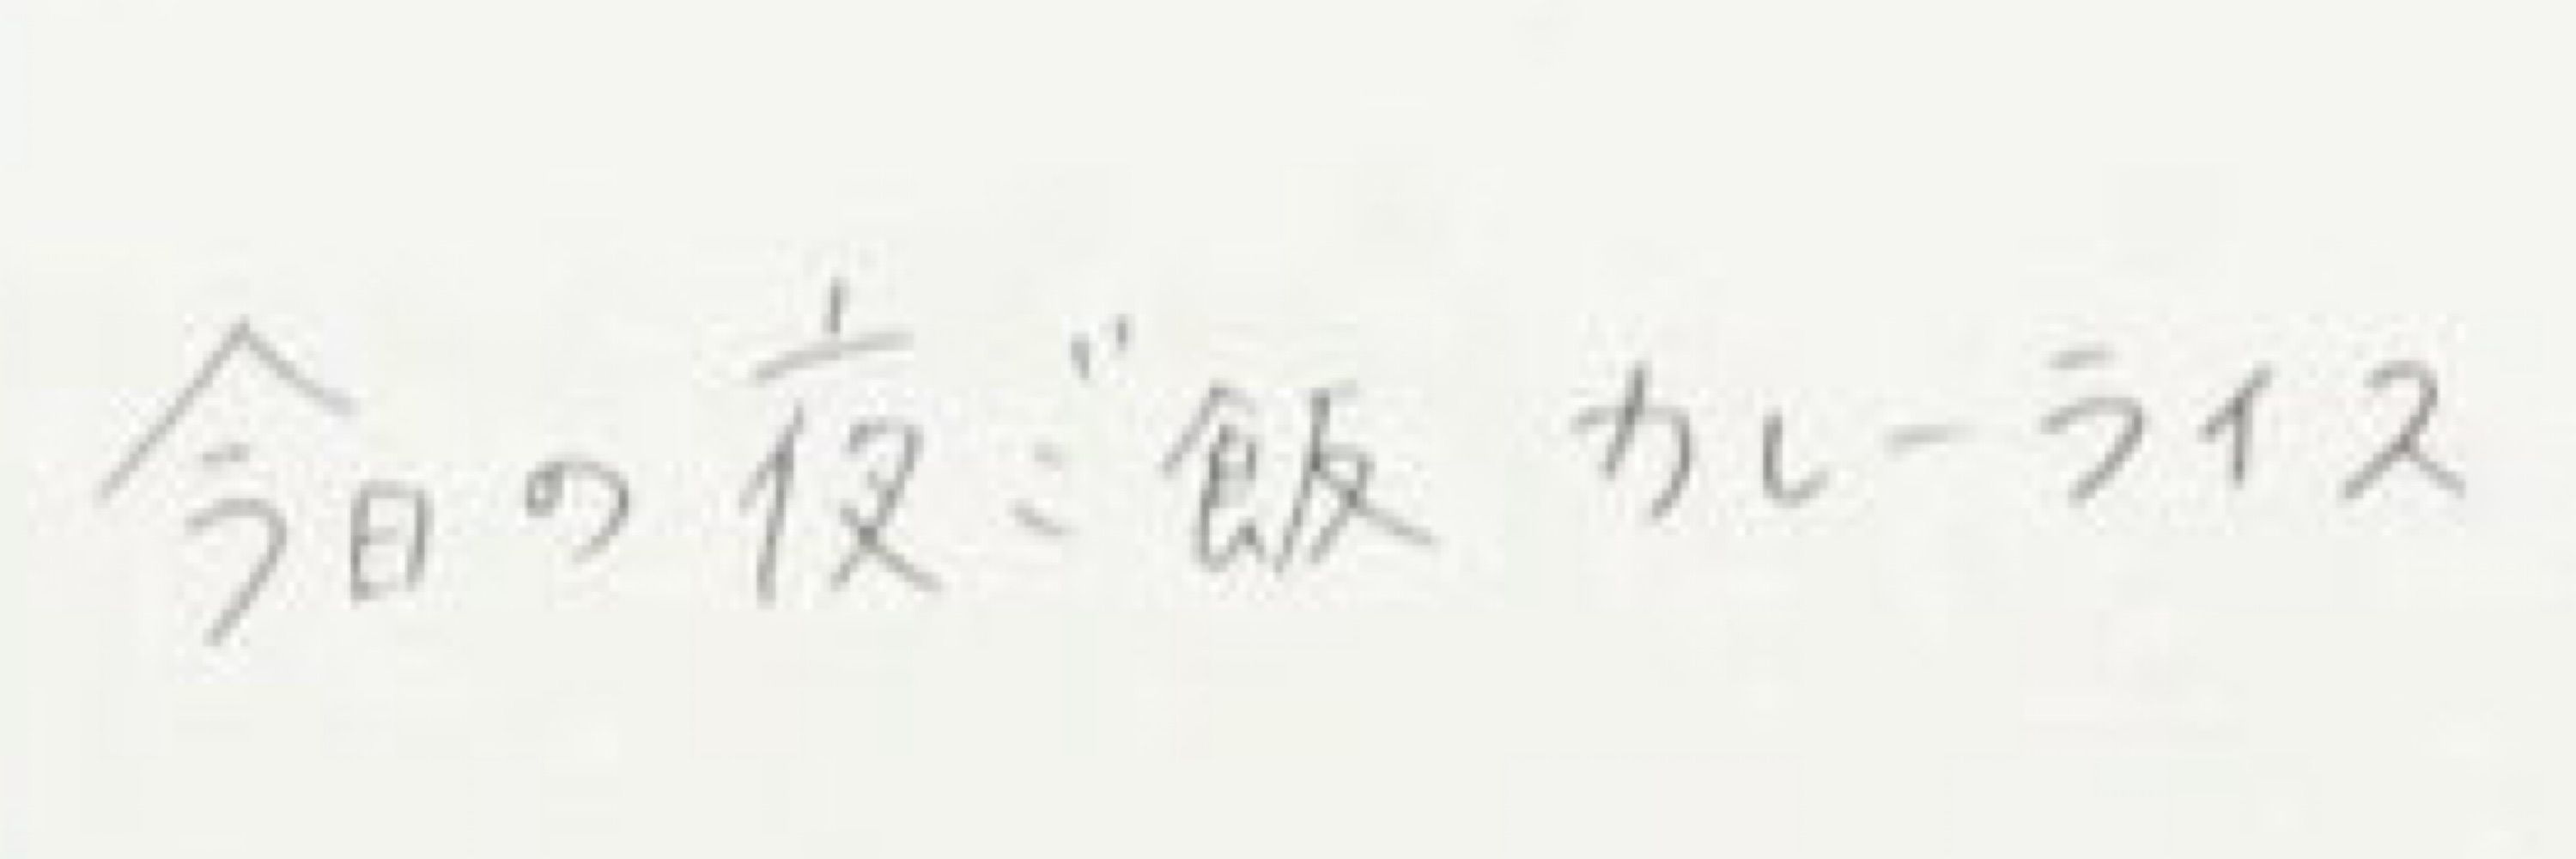 今日の夜ご飯 カレーライス